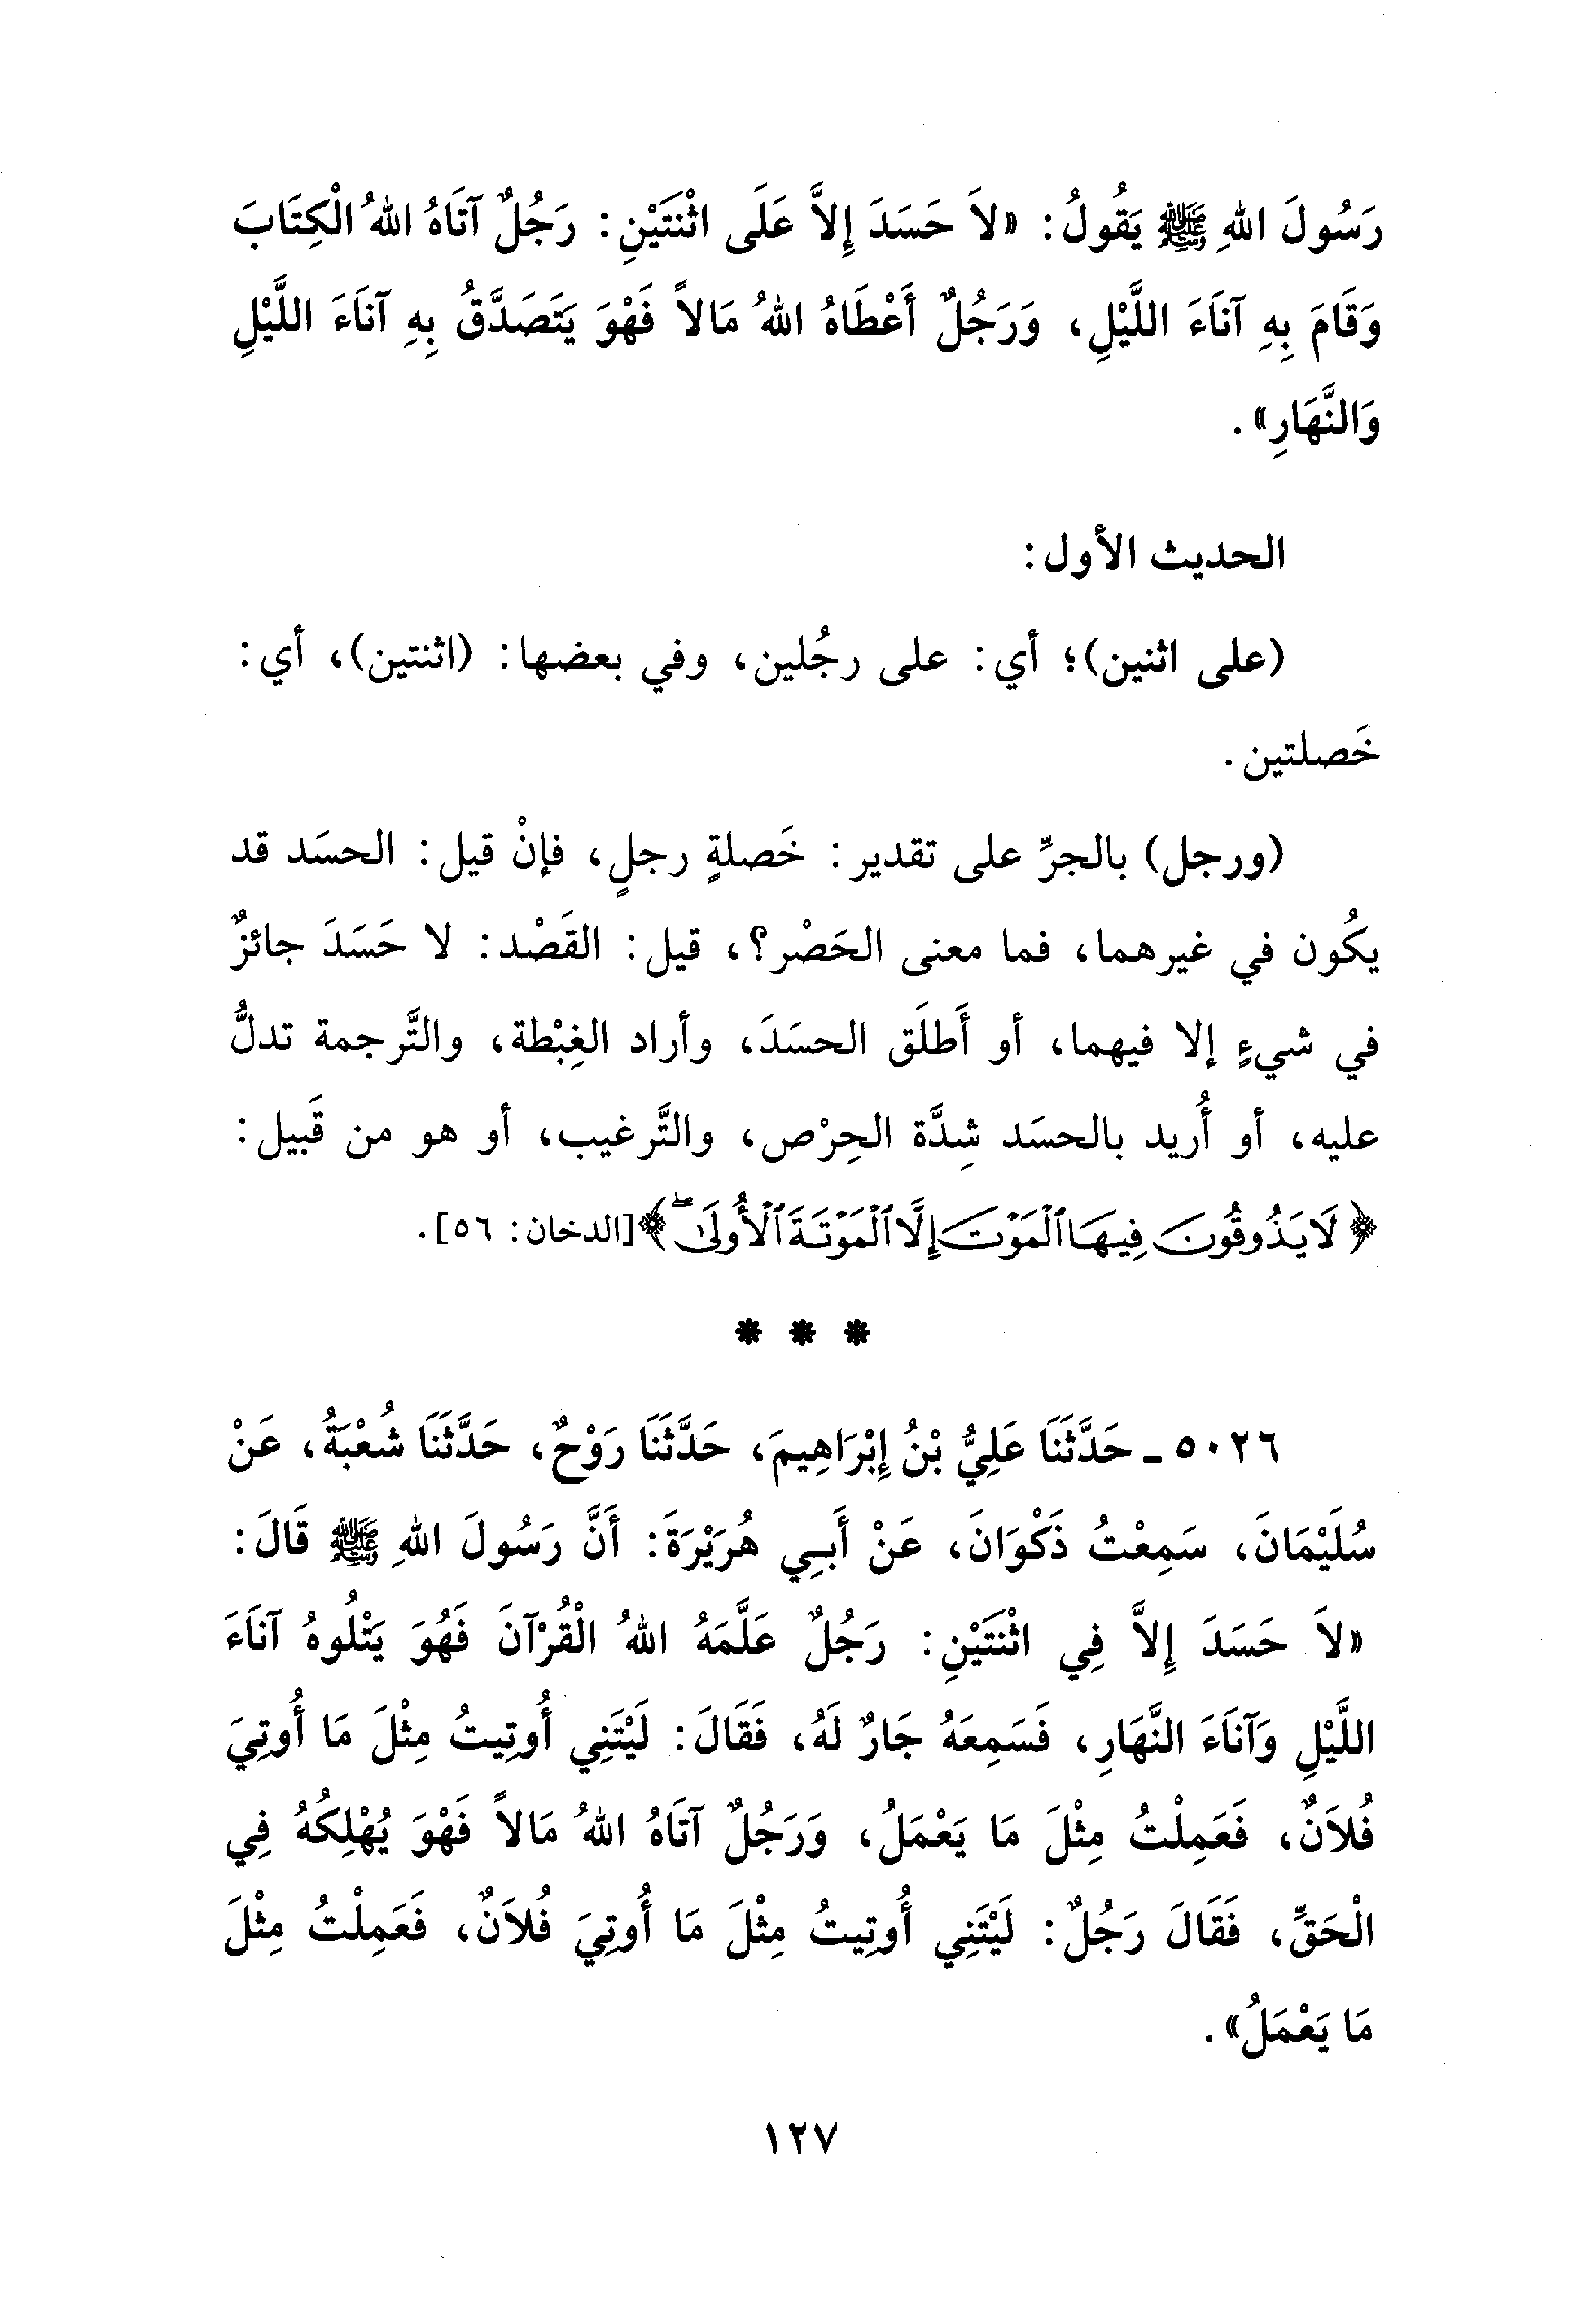 رَسُولَ اللهِ ﷺ يَقُولُ: «لاَ حَسَدَ إِلاَّ عَلَى اثْنَتَيْنِ: رَجُلٌ آتَاهُ اللهُ الْكِتَابَ
وَقَامَ بِهِ آنَاءَ اللَّيْلِ، وَرَجُلٌ أَعْطَاهُ اللهُ مَالاً فَهْوَ يَتَصَدَّقُ بِهِ آنَاءَ اللَّيْلِ
وَالنَّهَارِ».
الحديث الأول:
(على اثنين)؛ أي: على رجُلين، وفي بعضها: (اثنتين)، أي:
خَصلتين.
(ورجل) بالجرِّ على تقدير: خَصلةٍ رجلٍ، فإنْ قيل: الحسَد قد
يكُون في غيرهما، فما معنى الحَصْر؟، قيل: القَصْد: لا حَسَدَ جائزٌ
في شيءٍ إلا فيهما، أو أَطلَق الحسَدَ، وأراد الغِبْطة، والتَّرجمة تدلُّ
عليه، أو أُريد بالحسَد شِدَّة الحِرْص، والتَّرغيب، أو هو من قَبيل:
﴿لَا يَذُوقُونَ فِيهَا ٱلْمَوْتَ إِلَّا ٱلْمَوْتَةَ ٱلْأُولَىٰ ۖ﴾[الدخان: ٥٦].
* * *
٥٠٢٦ - حَدَّثَنَا عَلِيُّ بْنُ إِبْرَاهِيمَ، حَدَّثَنَا رَوْحٌ، حَدَّثَنَا شُعْبَةُ، عَنْ
سُلَيْمَانَ، سَمِعْتُ ذَكْوَانَ، عَنْ أَبِي هُرَيْرَةَ: أَنَّ رَسُولَ اللهِ ﷺ قَالَ:
«لاَ حَسَدَ إِلاَّ فِي اثْنَتَيْنِ: رَجُلٌ عَلَّمَهُ اللهُ الْقُرْآنَ فَهُوَ يَتْلُوهُ آنَاءَ
اللَّيْلِ وَآنَاءَ النَّهَارِ، فَسَمِعَهُ جَارٌ لَهُ، فَقَالَ: لَيْتَنِي أُوتِيتُ مِثْلَ مَا أُوتِيَ
فُلاَنٌ، فَعَمِلْتُ مِثْلَ مَا يَعْمَلُ، وَرَجُلٌ آتَاهُ اللهُ مَالاً فَهْوَ يُهْلِكُهُ فِي
الْحَقِّ، فَقَالَ رَجُلٌ: لَيْتَنِي أُوتِيتُ مِثْلَ مَا أُوتِيَ فُلاَنٌ، فَعَمِلْتُ مِثْلَ
مَا يَعْمَلُ».
١٢٧